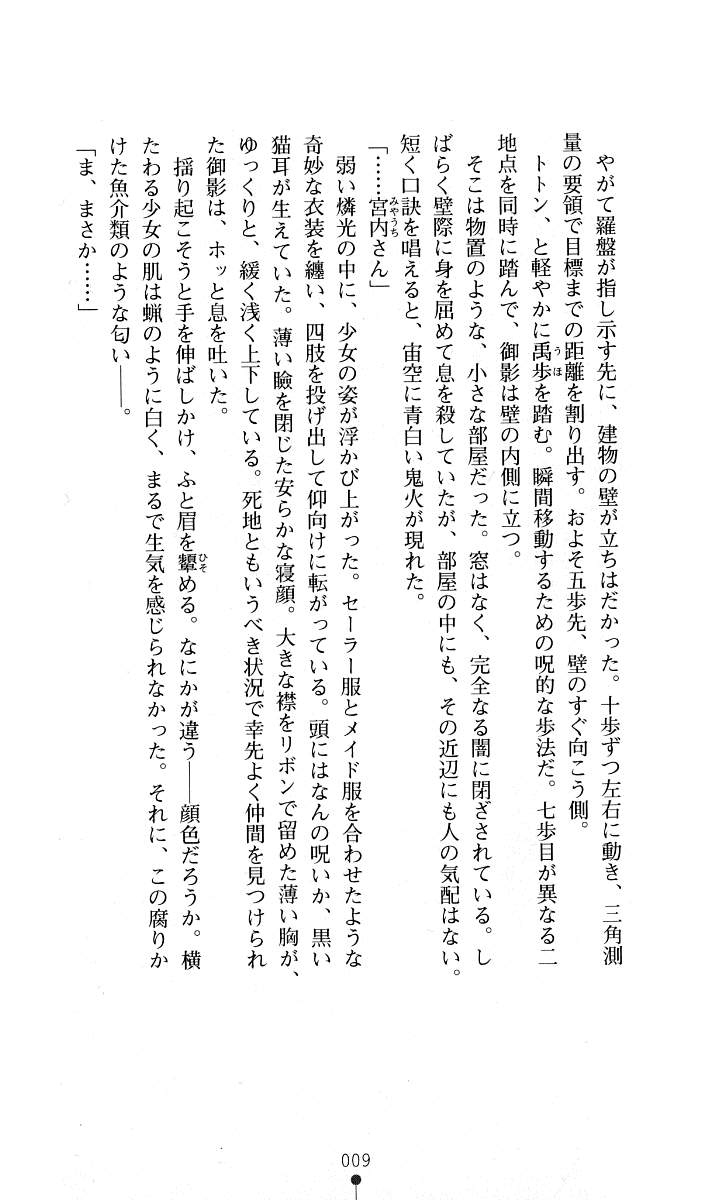 やがて羅盤が指し示す先に、建物の壁が立ちはだかった。十歩ずつ左右に動き、三角測
量の要領で目標までの距離を割り出す。およそ五歩先、壁のすぐ向こう側。
トトン、と軽やかに禹歩を踏む。瞬間移動するための呪的な歩法だ。七歩目が異なる二
うほ
地点を同時に踏んで、御影は壁の内側に立つ。
そこは物置のような、小さな部屋だった。窓はなく、完全なる闇に閉ざされている。し
ばらく壁際に身を屈めて息を殺していたが、部屋の中にも、その近辺にも人の気配はない。
短く口訣を唱えると、宙空に青白い鬼火が現れた。
「……宮内さん」
みやうち
弱い燐光の中に、少女の姿が浮かび上がった。セーラー服とメイド服を合わせたような
奇妙な衣装を纏い、四肢を投げ出して仰向けに転がっている。頭にはなんの呪いか、黒い
猫耳が生えていた。薄い瞼を閉じた安らかな寝顔。大きな襟をリボンで留めた薄い胸が、
ゆっくりと、緩く浅く上下している。死地ともいうべき状況で幸先よく仲間を見つけられ
た御影は、ホッと息を吐いた。
揺り起こそうと手を伸ばしかけ、ふと眉を顰める。なにかが違う――顔色だろうか。横
ひそ
たわる少女の肌は蝋のように白く、まるで生気を感じられなかった。それに、この腐りか
けた魚介類のような匂い――。
「ま、まさか……」
009